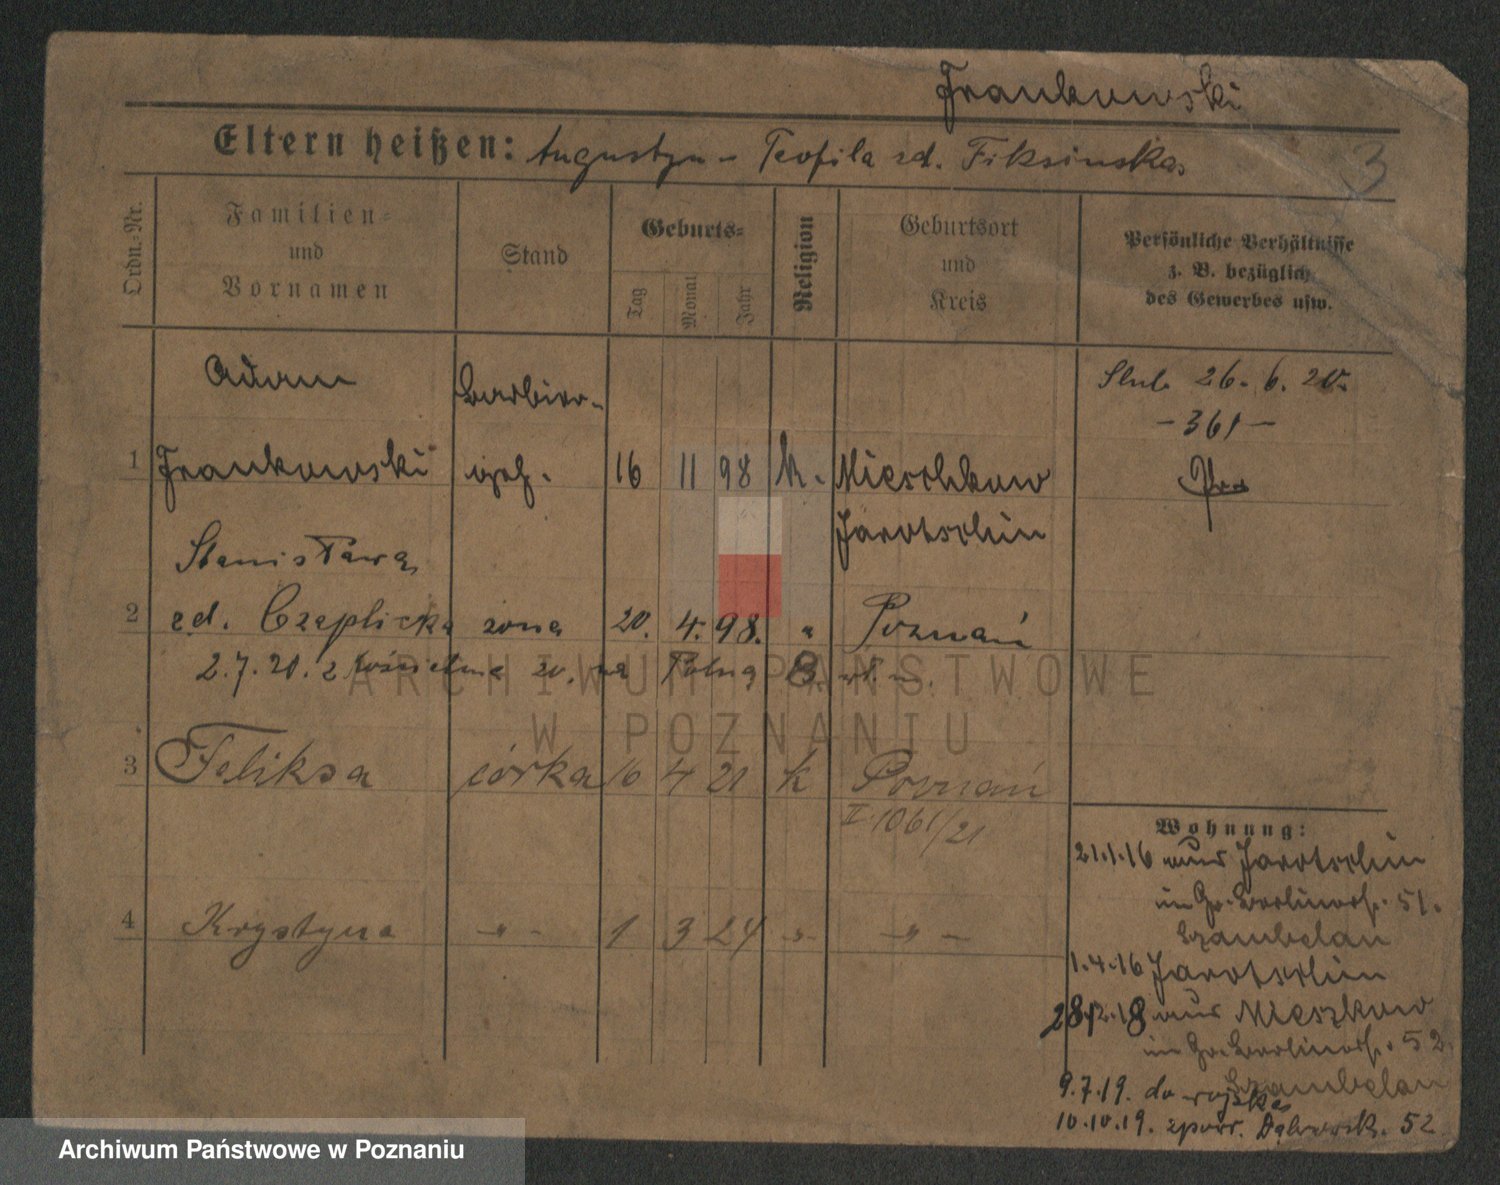 Frankowski
Eltern heißen: Augustyn – Teofila zd. Fiksinska
3
Ordn.-Nr.
Familien- und Vornamen
Stand
Geburts-
Tag
Monat
Jahr
Religion
Geburtsort und Kreis
Persönliche Verhältnisse
z. B. bezüglich
des Gewerbes usw.
Adam Barbier-
1 Frankowski geh. 16 11 98 k. Mieschkow
Jarotschin
Slub 26. 6. 20.
– 361 –
Stanisława
2 zd. Czeplicka zona 20. 4. 98. " Poznań
2.7.20. z 20. na Polną 8.
3 Feliksa córka 16 4 21 k Poznań
II. 1061/21
4 Krystyna -"- 1 3 24 -"- -"-
Wohnung:
21.1.16 aus Jarotschin
in Gr. Berlinerstr. 51.
Szambelan
1.4.16 Jarotschin
28.12.18 aus Mieszkow
in Gr. Berlinerstr. 52
Szambelan
9.7.19. do wojska
10.10.19. zpowr. Dąbrowsk. 52
ARCHIWUM PAŃSTWOWE
W POZNANIU
Archiwum Państwowe w Poznaniu